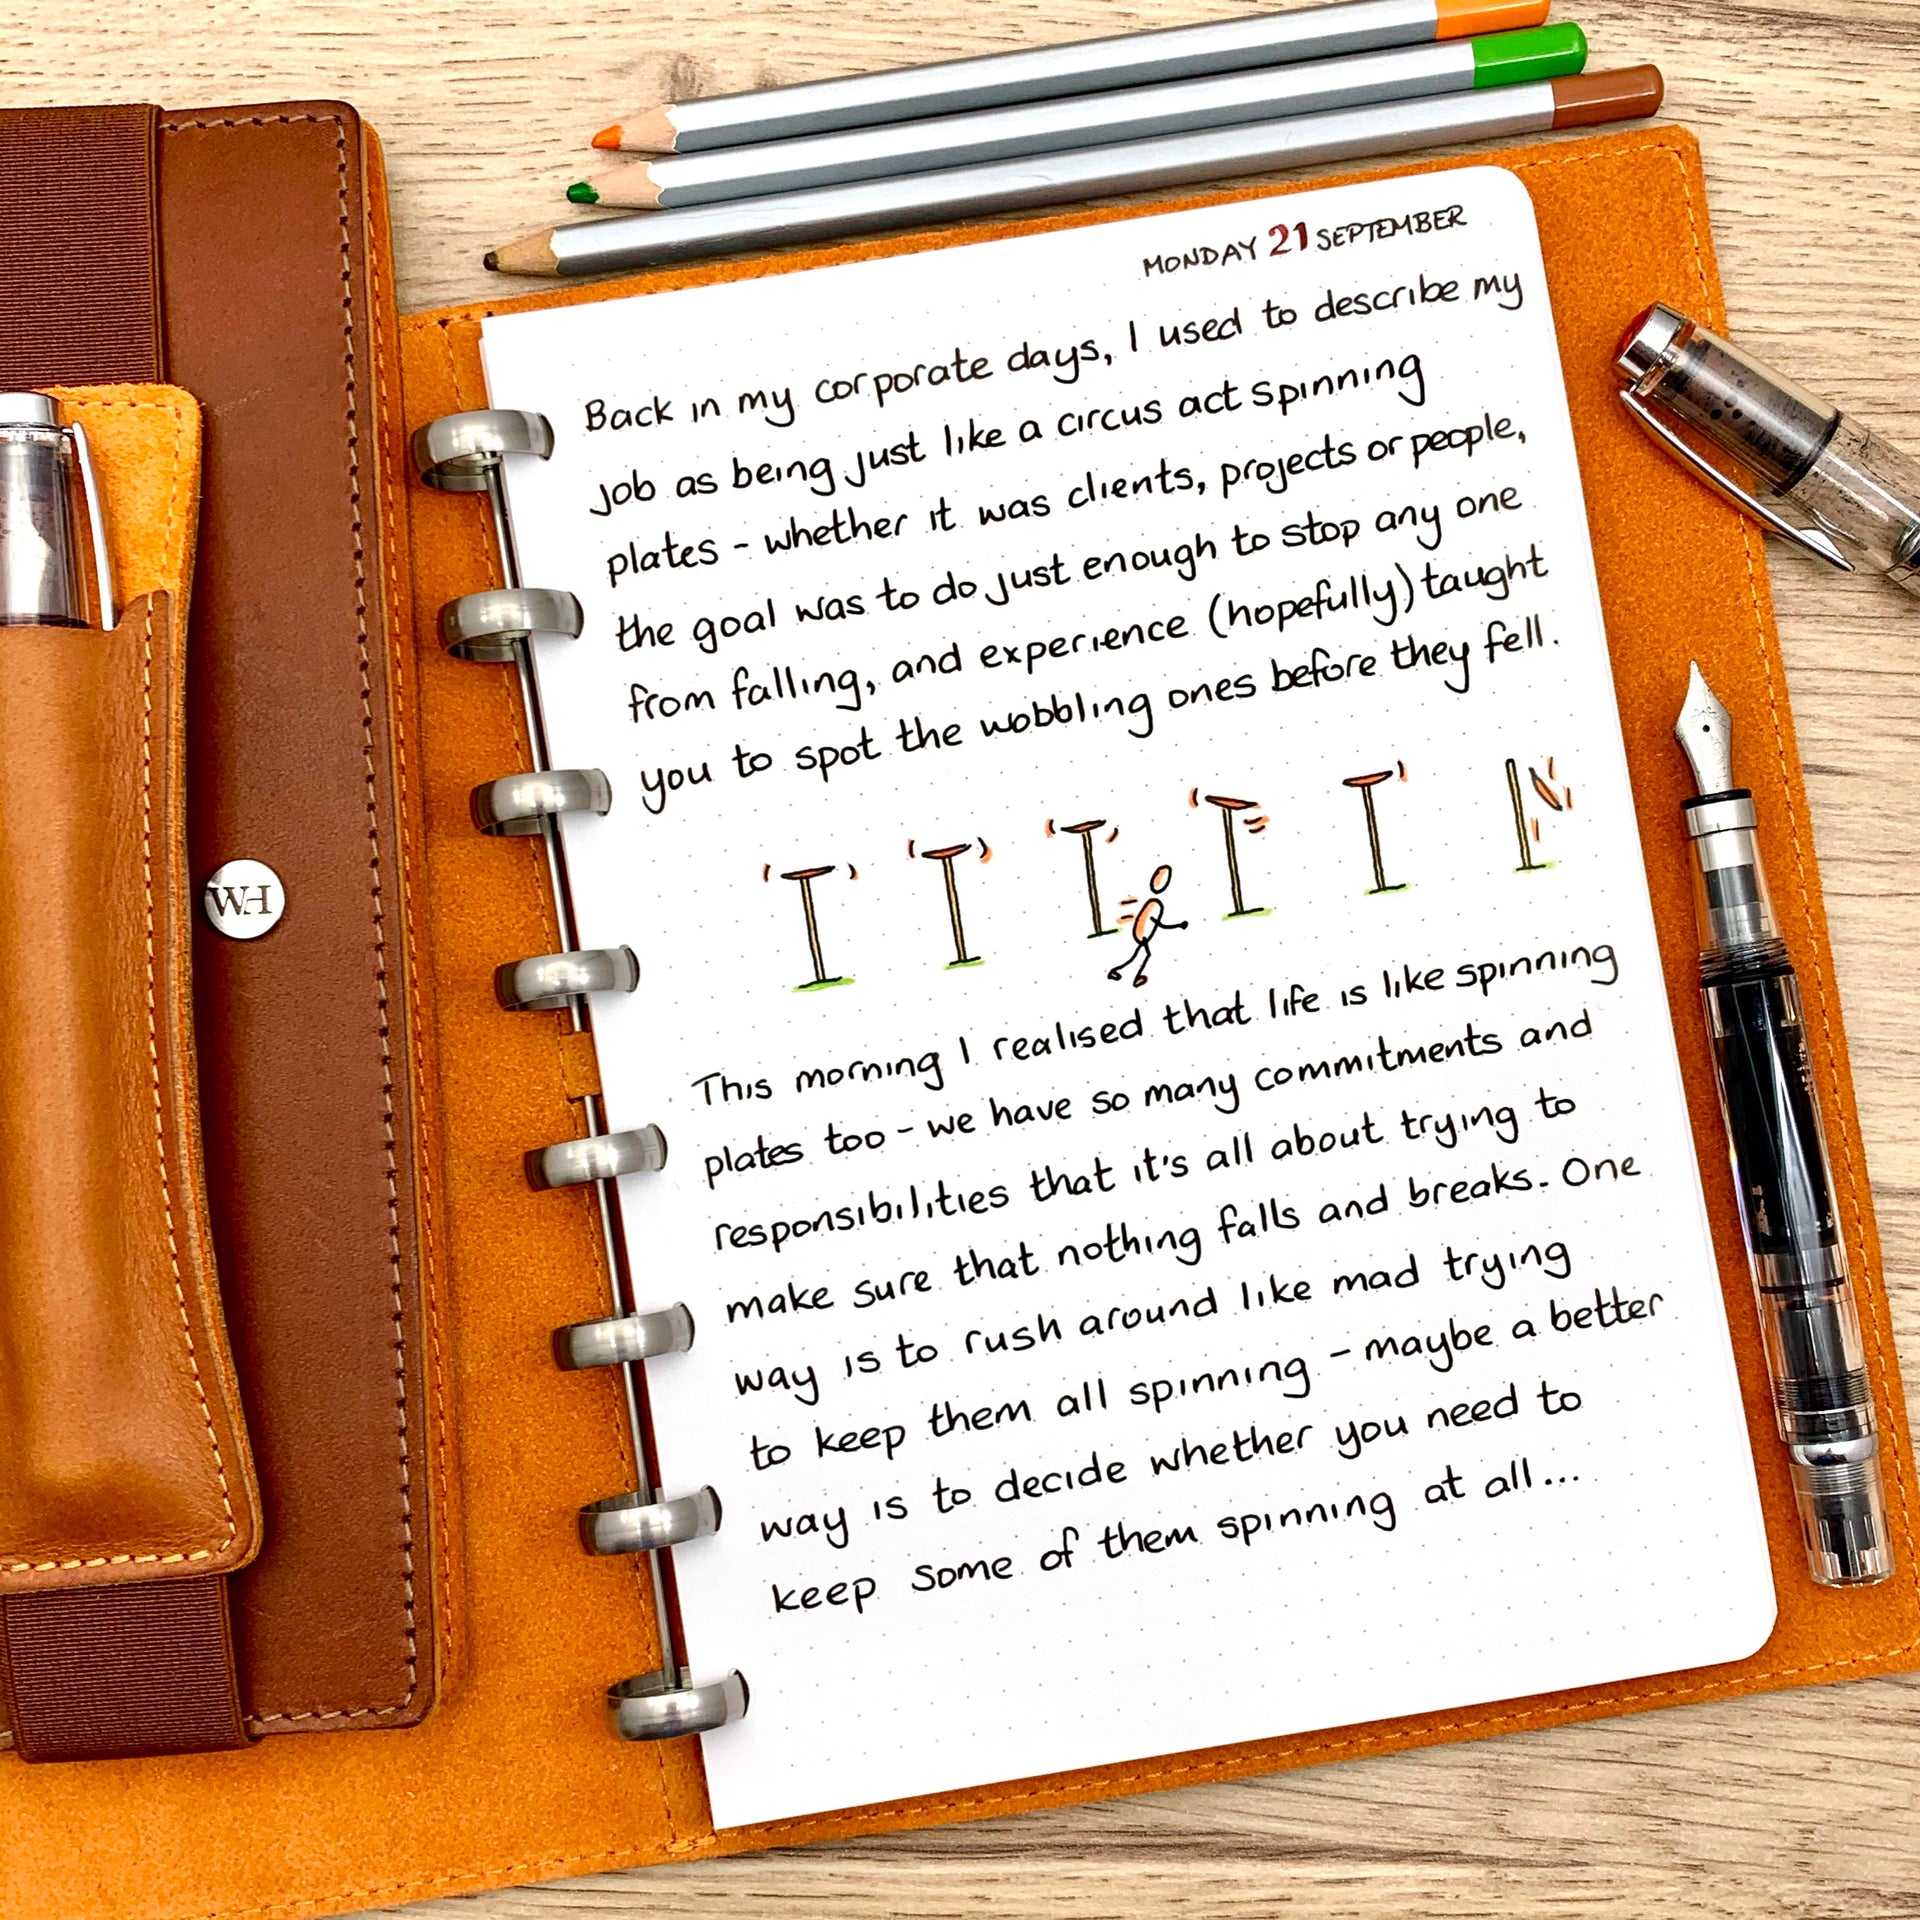 MONDAY 21 SEPTEMBER
Back in my corporate days, I used to describe my
job as being just like a circus act spinning
plates - whether it was clients, projects or people,
the goal was to do just enough to stop any one
from falling, and experience (hopefully) taught
you to spot the wobbling ones before they fell.
This morning I realised that life is like spinning
plates too - we have so many commitments and
responsibilities that it's all about trying to
make sure that nothing falls and breaks. One
way is to rush around like mad trying
to keep them all spinning - maybe a better
way is to decide whether you need to
keep some of them spinning at all...
WH